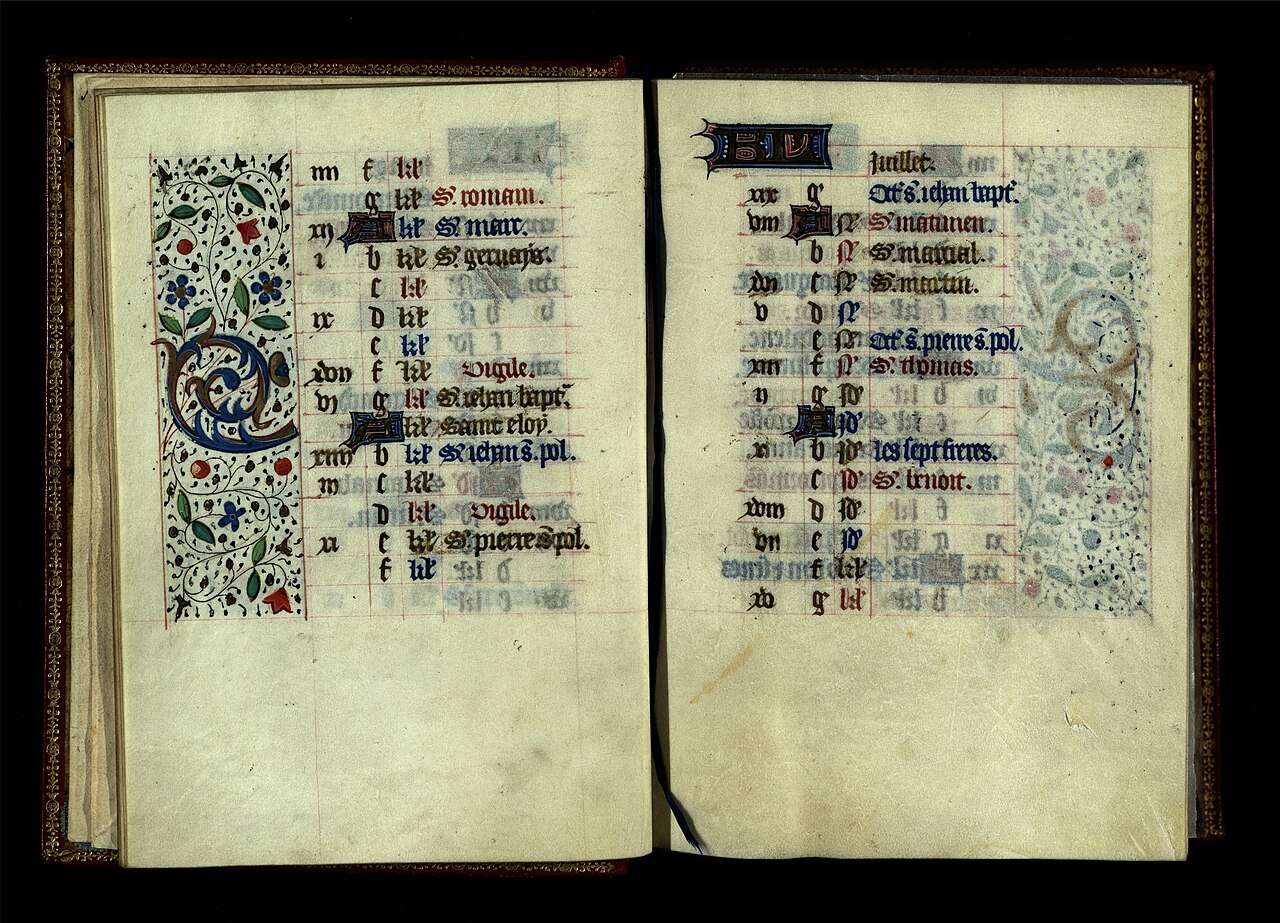 iiii f kl
g kl S. romain.
xij A kl S. marc.
i b kl S. geruays.
c kl
ix d kl
e kl
xvij f kl Vigile.
vj g kl S. iehan bapt.
A kl Saint eloy.
xiiij b kl S. iehan s. pol.
iij c kl
d kl Vigile.
xi e kl S. pierre s. pol.
f kl
KL Juillet.
xix g Oct. s. iehan bapt.
viij A N S. maturien.
b N S. marcial.
xvj c N S. martin.
v d N
e N Oct. s. pierre s. pol.
xiij f N S. thomas.
ij g Jd
A Jd
x b Jd les sept freres.
c Jd S. benoit.
xviij d Jd
vij e Jd
f kl
xv g kl